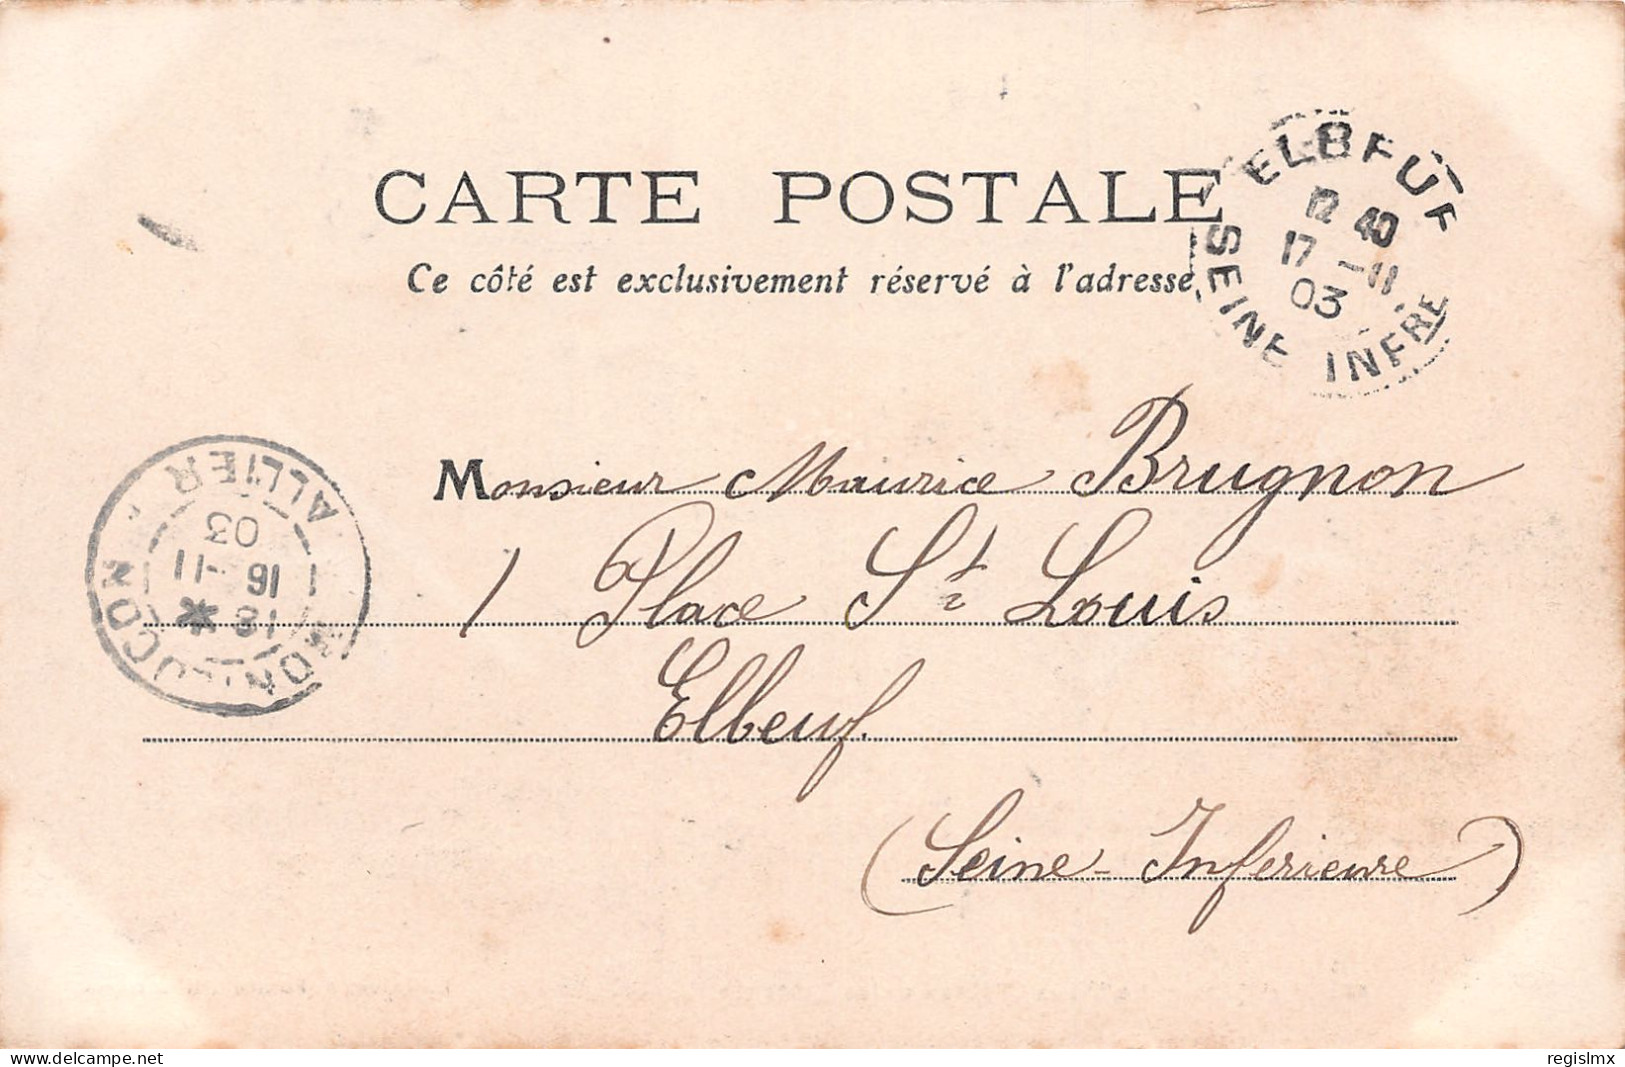 CARTE POSTALE
Ce côté est exclusivement réservé à l'adresse
ELBEUF
12 40
17 -11
03
SEINE INFRE
Monsieur Maurice Brugnon
1 Place St Louis
Elbeuf.
(Seine-Inferieure)
MONTLUCON
18 *
16 -11
03
ALLIER
www.delcampe.net
regislmx